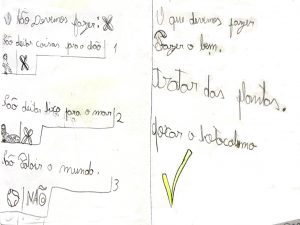 O Não Devemos fazer: X
São deitar coisas para o chão
1
São deitar lixo para o mar
2
São Poluir o mundo.
3
NÃO
O que devemos fazer
Fazer o bem.
tratar das plantas.
o